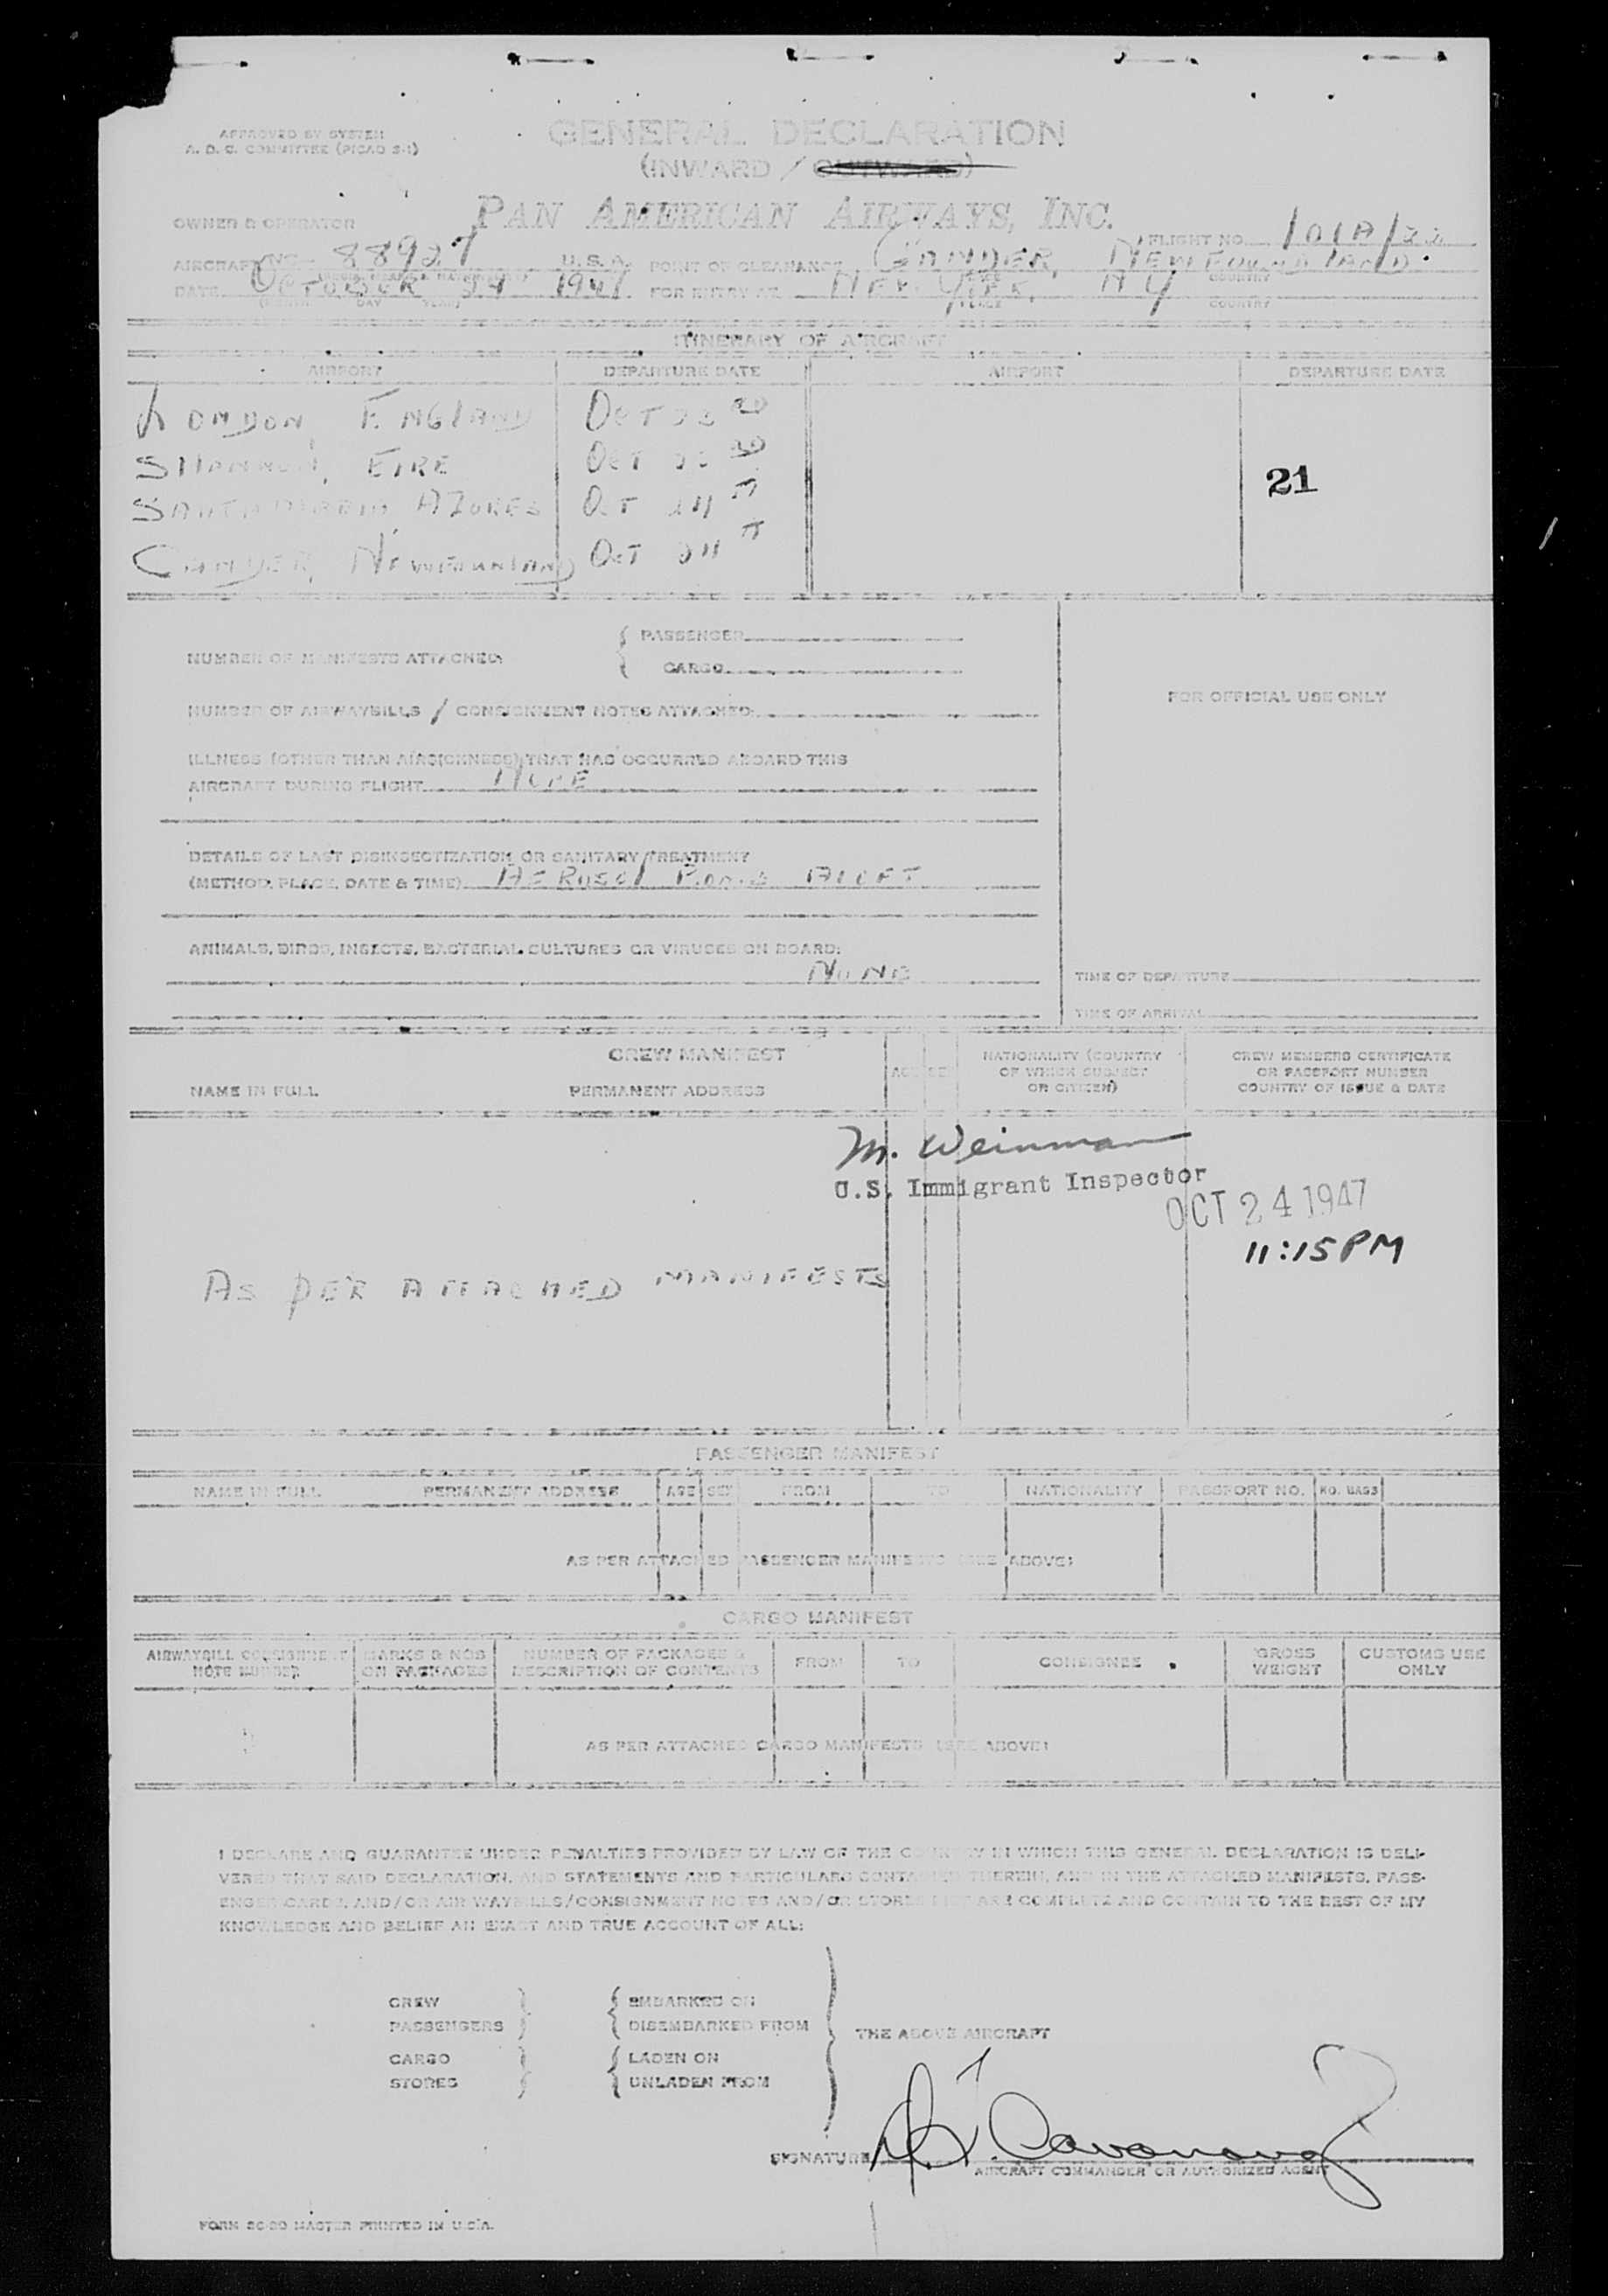 APPROVED BY SYSTEM
A. D. C. COMMITTEE (PICAO S-1)
GENERAL DECLARATION
(INWARD / OUTWARD)
OWNER & OPERATOR PAN AMERICAN AIRWAYS, INC.
FLIGHT NO. 101A/22
AIRCRAFT NC 88927 U.S.A. POINT OF CLEARANCE GANDER, NEWFOUNDLAND
DATE OCTOBER 24 1947 FOR ENTRY AT NEW YORK, NY
(MONTH DAY YEAR) PLACE COUNTRY
ITINERARY OF AIRCRAFT
AIRPORT DEPARTURE DATE AIRPORT DEPARTURE DATE
LONDON, ENGLAND OCT 23 RD
SHANNON, EIRE OCT 23 RD
21
SANTA MARIA, AZORES OCT 24 TH
GANDER, NEWFOUNDLAND OCT 24 TH
NUMBER OF MANIFESTS ATTACHED: PASSENGER
CARGO
FOR OFFICIAL USE ONLY
NUMBER OF AIRWAYBILLS / CONSIGNMENT NOTES ATTACHED:
ILLNESS (OTHER THAN AIRSICKNESS) THAT HAS OCCURRED ABOARD THIS
AIRCRAFT DURING FLIGHT NONE
DETAILS OF LAST DISINSECTIZATION OR SANITARY TREATMENT
(METHOD, PLACE, DATE & TIME) AEROSOL BOMB ALOFT
ANIMALS, BIRDS, INSECTS, BACTERIAL CULTURES OR VIRUSES ON BOARD:
NONE
TIME OF DEPARTURE
TIME OF ARRIVAL
CREW MANIFEST
NAME IN FULL PERMANENT ADDRESS AGE SEX NATIONALITY (COUNTRY OF WHICH SUBJECT OR CITIZEN) CREW MEMBERS CERTIFICATE OR PASSPORT NUMBER COUNTRY OF ISSUE & DATE
M. Weinman
U.S. Immigrant Inspector
OCT 24 1947
11:15PM
AS PER ATTACHED MANIFESTS
PASSENGER MANIFEST
NAME IN FULL PERMANENT ADDRESS AGE SEX FROM TO NATIONALITY PASSPORT NO. NO. BAGS
AS PER ATTACHED PASSENGER MANIFESTS (SEE ABOVE)
CARGO MANIFEST
AIRWAYBILL CONSIGNMENT NOTE NUMBER MARKS & NOS ON PACKAGES NUMBER OF PACKAGES & DESCRIPTION OF CONTENTS FROM TO CONSIGNEE GROSS WEIGHT CUSTOMS USE ONLY
AS PER ATTACHED CARGO MANIFESTS (SEE ABOVE)
I DECLARE AND GUARANTEE UNDER PENALTIES PROVIDED BY LAW OF THE COUNTRY IN WHICH THIS GENERAL DECLARATION IS DELI-
VERED THAT SAID DECLARATION, AND STATEMENTS AND PARTICULARS CONTAINED THEREIN, AND IN THE ATTACHED MANIFESTS, PASS-
ENGER CARDS, AND/OR AIR WAYBILLS/CONSIGNMENT NOTES AND/OR STORES LIST ARE COMPLETE AND CONTAIN TO THE BEST OF MY
KNOWLEDGE AND BELIEF AN EXACT AND TRUE ACCOUNT OF ALL:
CREW EMBARKED ON
PASSENGERS DISEMBARKED FROM
THE ABOVE AIRCRAFT
CARGO LADEN ON
STORES UNLADEN FROM
SIGNATURE
AIRCRAFT COMMANDER OR AUTHORIZED AGENT
MASTER PRINTED IN U.S.A.